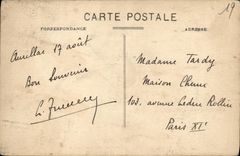 19
CARTE POSTALE
CORRESPONDANCE
ADRESSE
Aurillac 17 août
Bon Souvenir
Madame Tardy
Maison Chene
103. avenue Ledru Rollin
Paris XIe